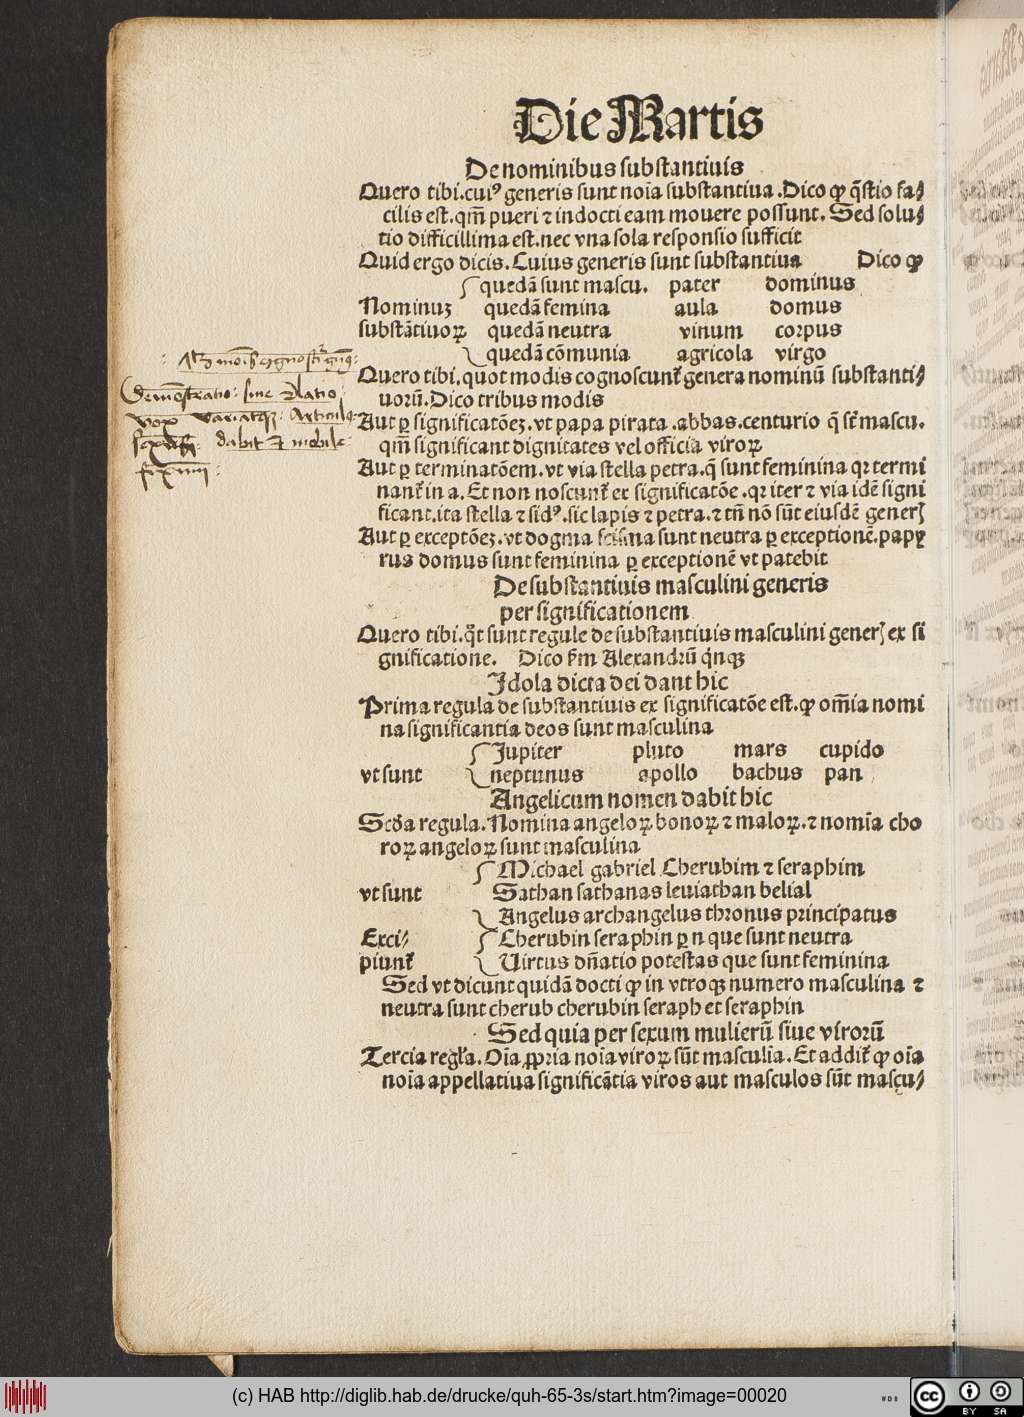 Die Martis
De nominibus substantiuis
Quero tibi.cuiꝰ generis sunt noīa substantiua.Dico ꝙ q̄stio fa⸗
cilis est.qm̄ pueri ⁊ indocti eam mouere possunt. Sed solu⸗
tio difficillima est.nec vna sola responsio sufficit
Quid ergo dicis.Cuius generis sunt substantiua Dico ꝙ
quedā sunt mascu. pater dominus
Nominuꝫ quedā femina aula domus
substātiuoꝝ quedā neutra vinum corpus
quedā cōmunia agricola virgo
Quero tibi.quot modis cognoscunt᷑ genera nominū substanti⸗
uorū.Dico tribus modis
Aut ꝑ significatōeꝫ.vt papa pirata.abbas.centurio q̄ st̄ mascu.
qm̄ significant dignitates vel officia viroꝝ
Aut ꝑ terminatōem.vt via stella petra.q̄ sunt feminina qꝛ termi
nant᷑ in a. Et non noscunt᷑ ex significatōe.qꝛ iter ⁊ via idē signi
ficant.ita stella ⁊ sidꝰ.sic lapis ⁊ petra.⁊ tn̄ nō sūt eiusdē generꝭ
Aut ꝑ exceptōeꝫ.vt dogma scisma sunt neutra ꝑ exceptionē.papy
rus domus sunt feminina ꝑ exceptionē vt patebit
De substantiuis masculini generis
per significationem
Quero tibi.q̄t sunt regule de substantiuis masculini generꝭ ex si
gnificatione. Dico ẜm Alexandrū qͥnqꝫ
Idola dicta dei dant hic
Prima regula de substantiuis ex significatōe est.ꝙ om̄ia nomi
na significantia deos sunt masculina
Jupiter pluto mars cupido
vt sunt neptunus apollo bachus pan
Angelicum nomen dabit hic
Scd̄a regula.Nomina angeloꝝ bonoꝝ ⁊ maloꝝ.⁊ nomīa cho
roꝝ angeloꝝ sunt masculina
Michael gabriel Cherubim ⁊ seraphim
vt sunt Sathan sathanas leuiathan belial
Angelus archangelus thronus principatus
Exci⸗ Cherubin seraphin ꝑ n que sunt neutra
piunt᷑ Uirtus dn̄atio potestas que sunt feminina
Sed vt dicunt quidā docti ꝙ in vtroqꝫ numero masculina ⁊
neutra sunt cherub cherubin seraph et seraphin
Sed quia per sexum mulierū siue virorū
Tercia regl̄a. Oīa ꝓpria noīa viroꝝ sūt masculīa. Et addit᷑ ꝙ oīa
noīa appellatiua significātia viros aut masculos sūt mascu⸗
siue
dabit et mobile
(c) HAB http://diglib.hab.de/drucke/quh-65-3s/start.htm?image=00020
WDB
cc BY SA